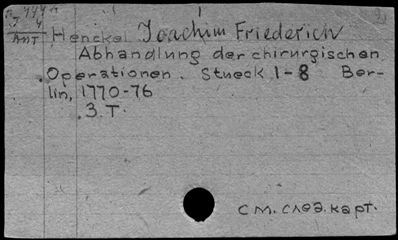 Henckel Joachim Friederich
Abhandlung der chirurgischen
Operationen. Stueck 1-8 Ber-
lin, 1770-76
3.T.
см. след. карт.